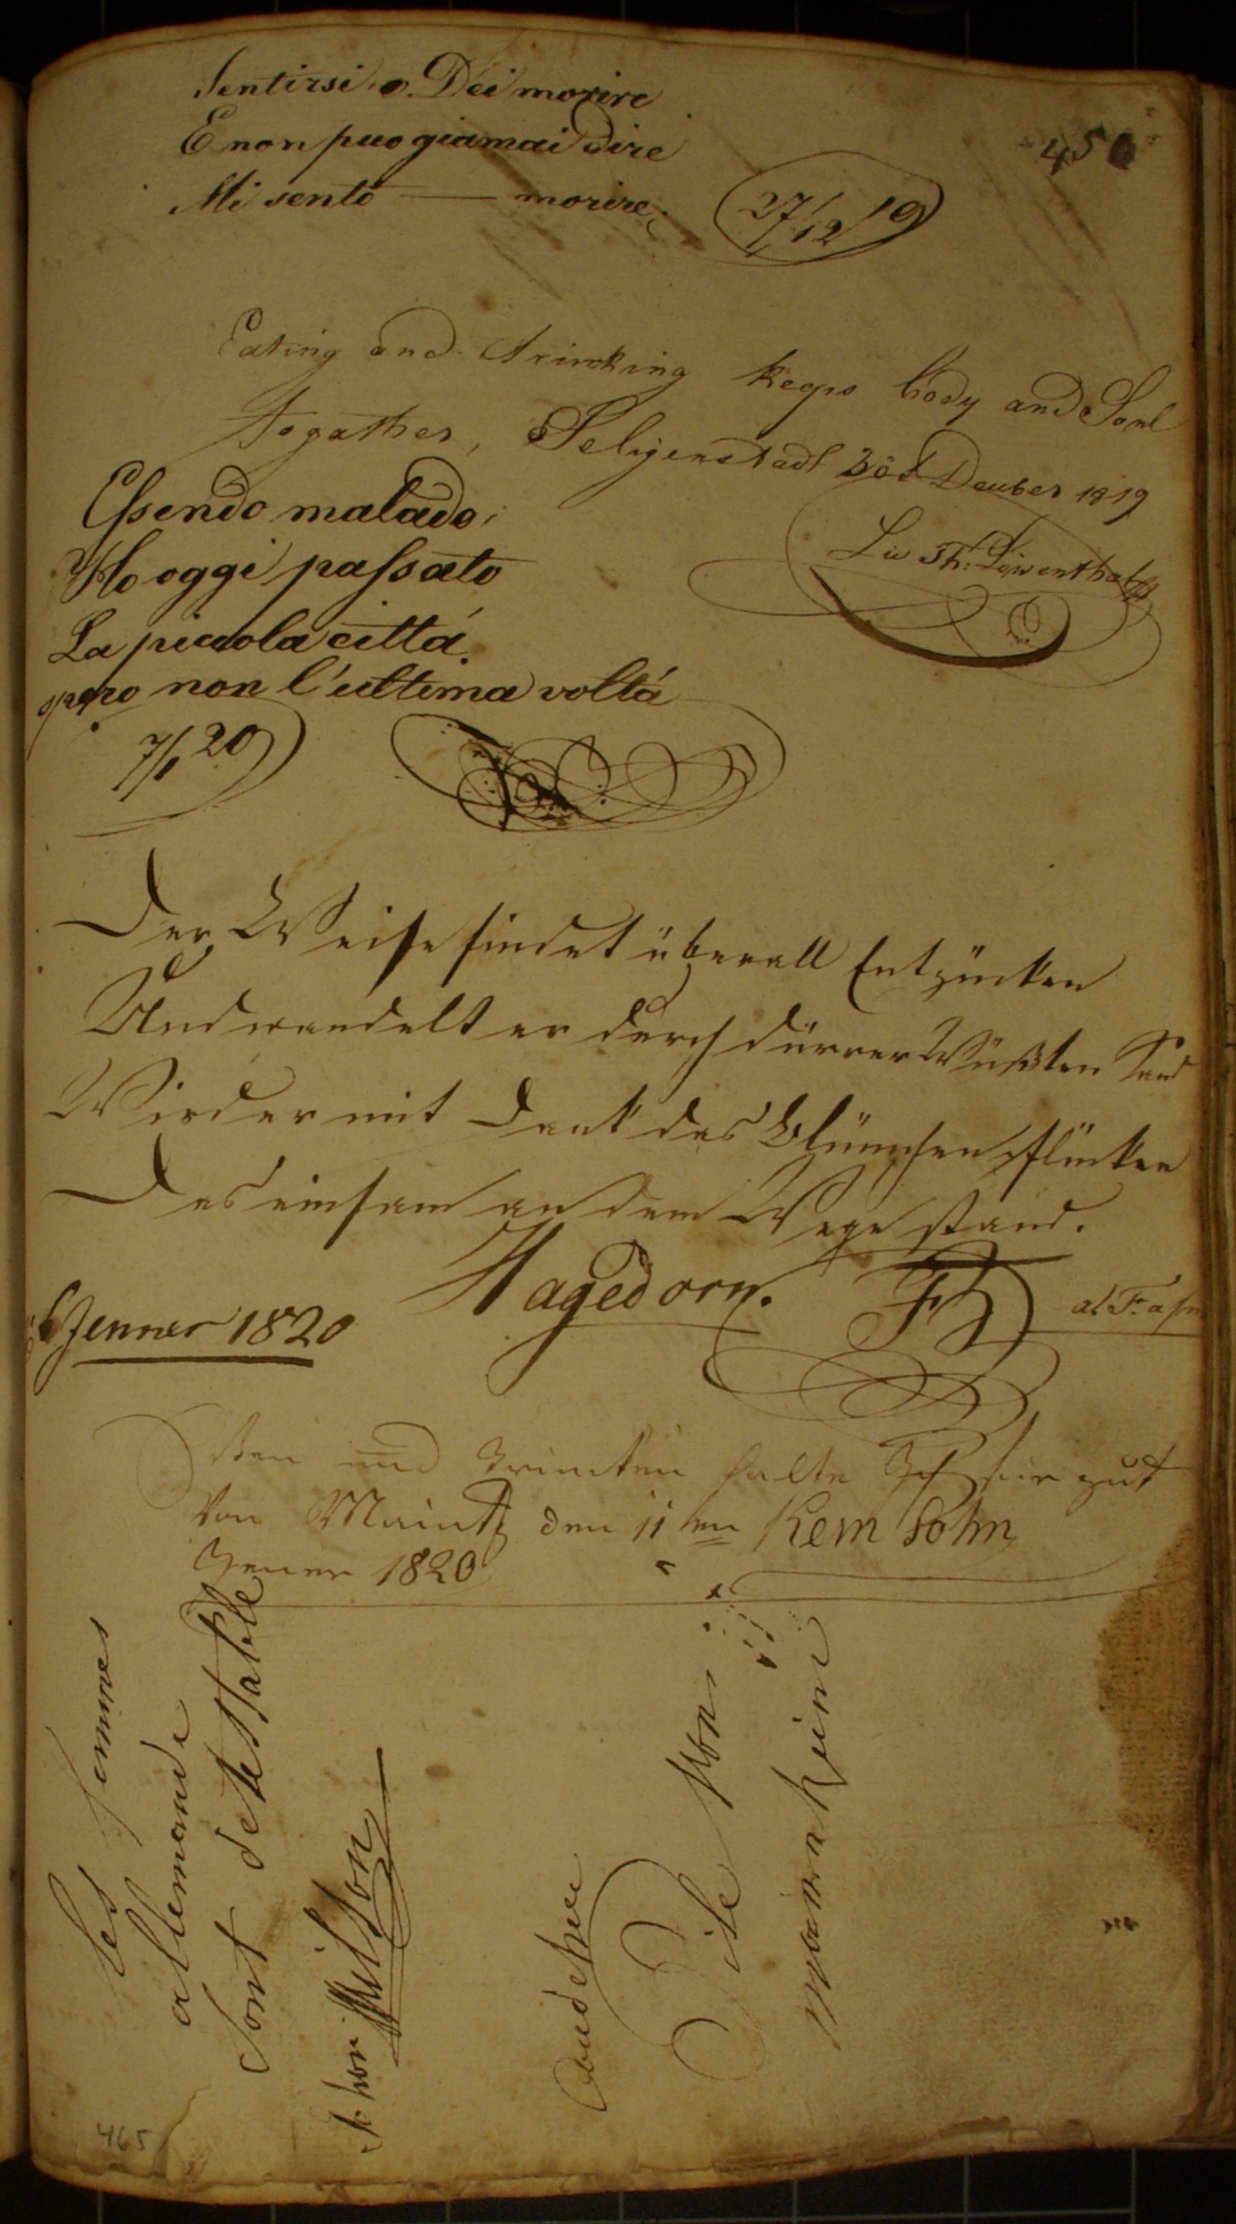 Sentirsi o Dei morire
E non puo giamai dire
Mi sento — morire
27/12 19
450
Eating and drinking keeps body and Soul
Togather, Seligenstadt 30t Deuber 1819
Th: Löwenthal
Essendo malado
Ho oggi passato
La piccola cittá
spero non l'ultima voltá
7/1 20
Der Weise findet überall Entzücken
Und wandelt er durch dürrer Wüßten Sand
Wird er mit Dank das Blümchen pflücken
Das einsam an dem Wege stand.
Hagedorn.
6 Jenner 1820
Essen und Trincken halte Ich für gut
Von Maintz den 11ten Kern Sohn
Jener 1820
Les femmes
allemande
Sont detestable
Wilson
von
Mannheim
465